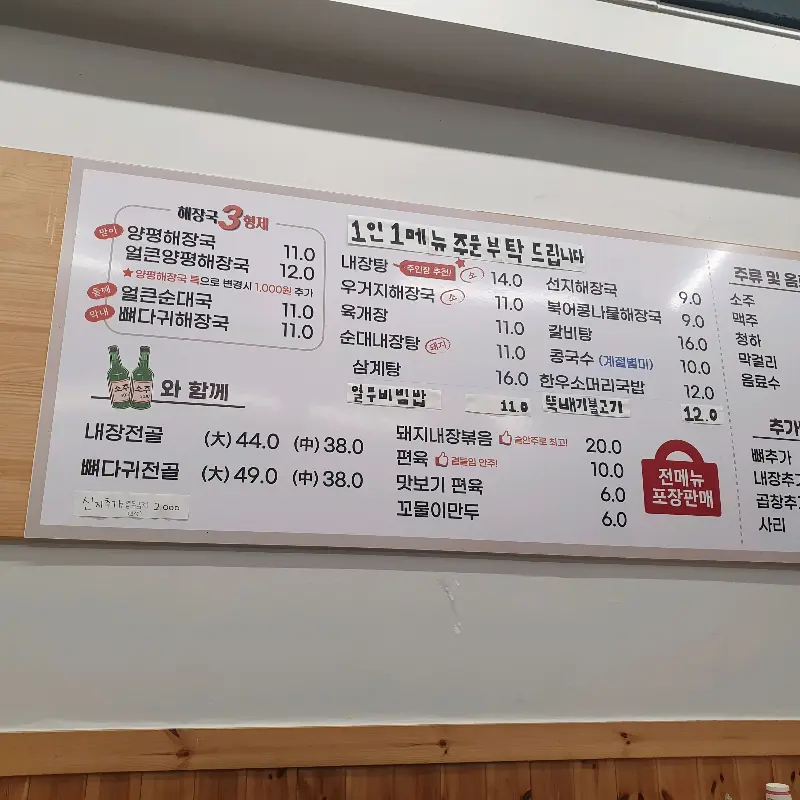 해장국 3형제
맏이 양평해장국 11.0
얼큰양평해장국 12.0
★양평해장국 특으로 변경시 1,000원 추가
둘째 얼큰순대국 11.0
막내 뼈다귀해장국 11.0
소주 소주 와 함께
내장전골 (大) 44.0 (中) 38.0
뼈다귀전골 (大) 49.0 (中) 38.0
선지추가 2,000
1인 1메뉴 주문 부탁 드립니다
내장탕 주인장 추천! 소 14.0
우거지해장국 소 11.0
육개장 11.0
순대내장탕 돼지 11.0
삼계탕 16.0
열무비빔밥 11.0
선지해장국 9.0
북어콩나물해장국 9.0
갈비탕 16.0
콩국수 (계절별미) 10.0
한우소머리국밥 12.0
뚝배기불고기 12.0
돼지내장볶음 술안주로 최고! 20.0
편육 곁들임 안주! 10.0
맛보기 편육 6.0
꼬물이만두 6.0
전메뉴
포장판매
주류 및 음료
소주
맥주
청하
막걸리
음료수
추가
뼈추가
내장추가
곱창추가
사리